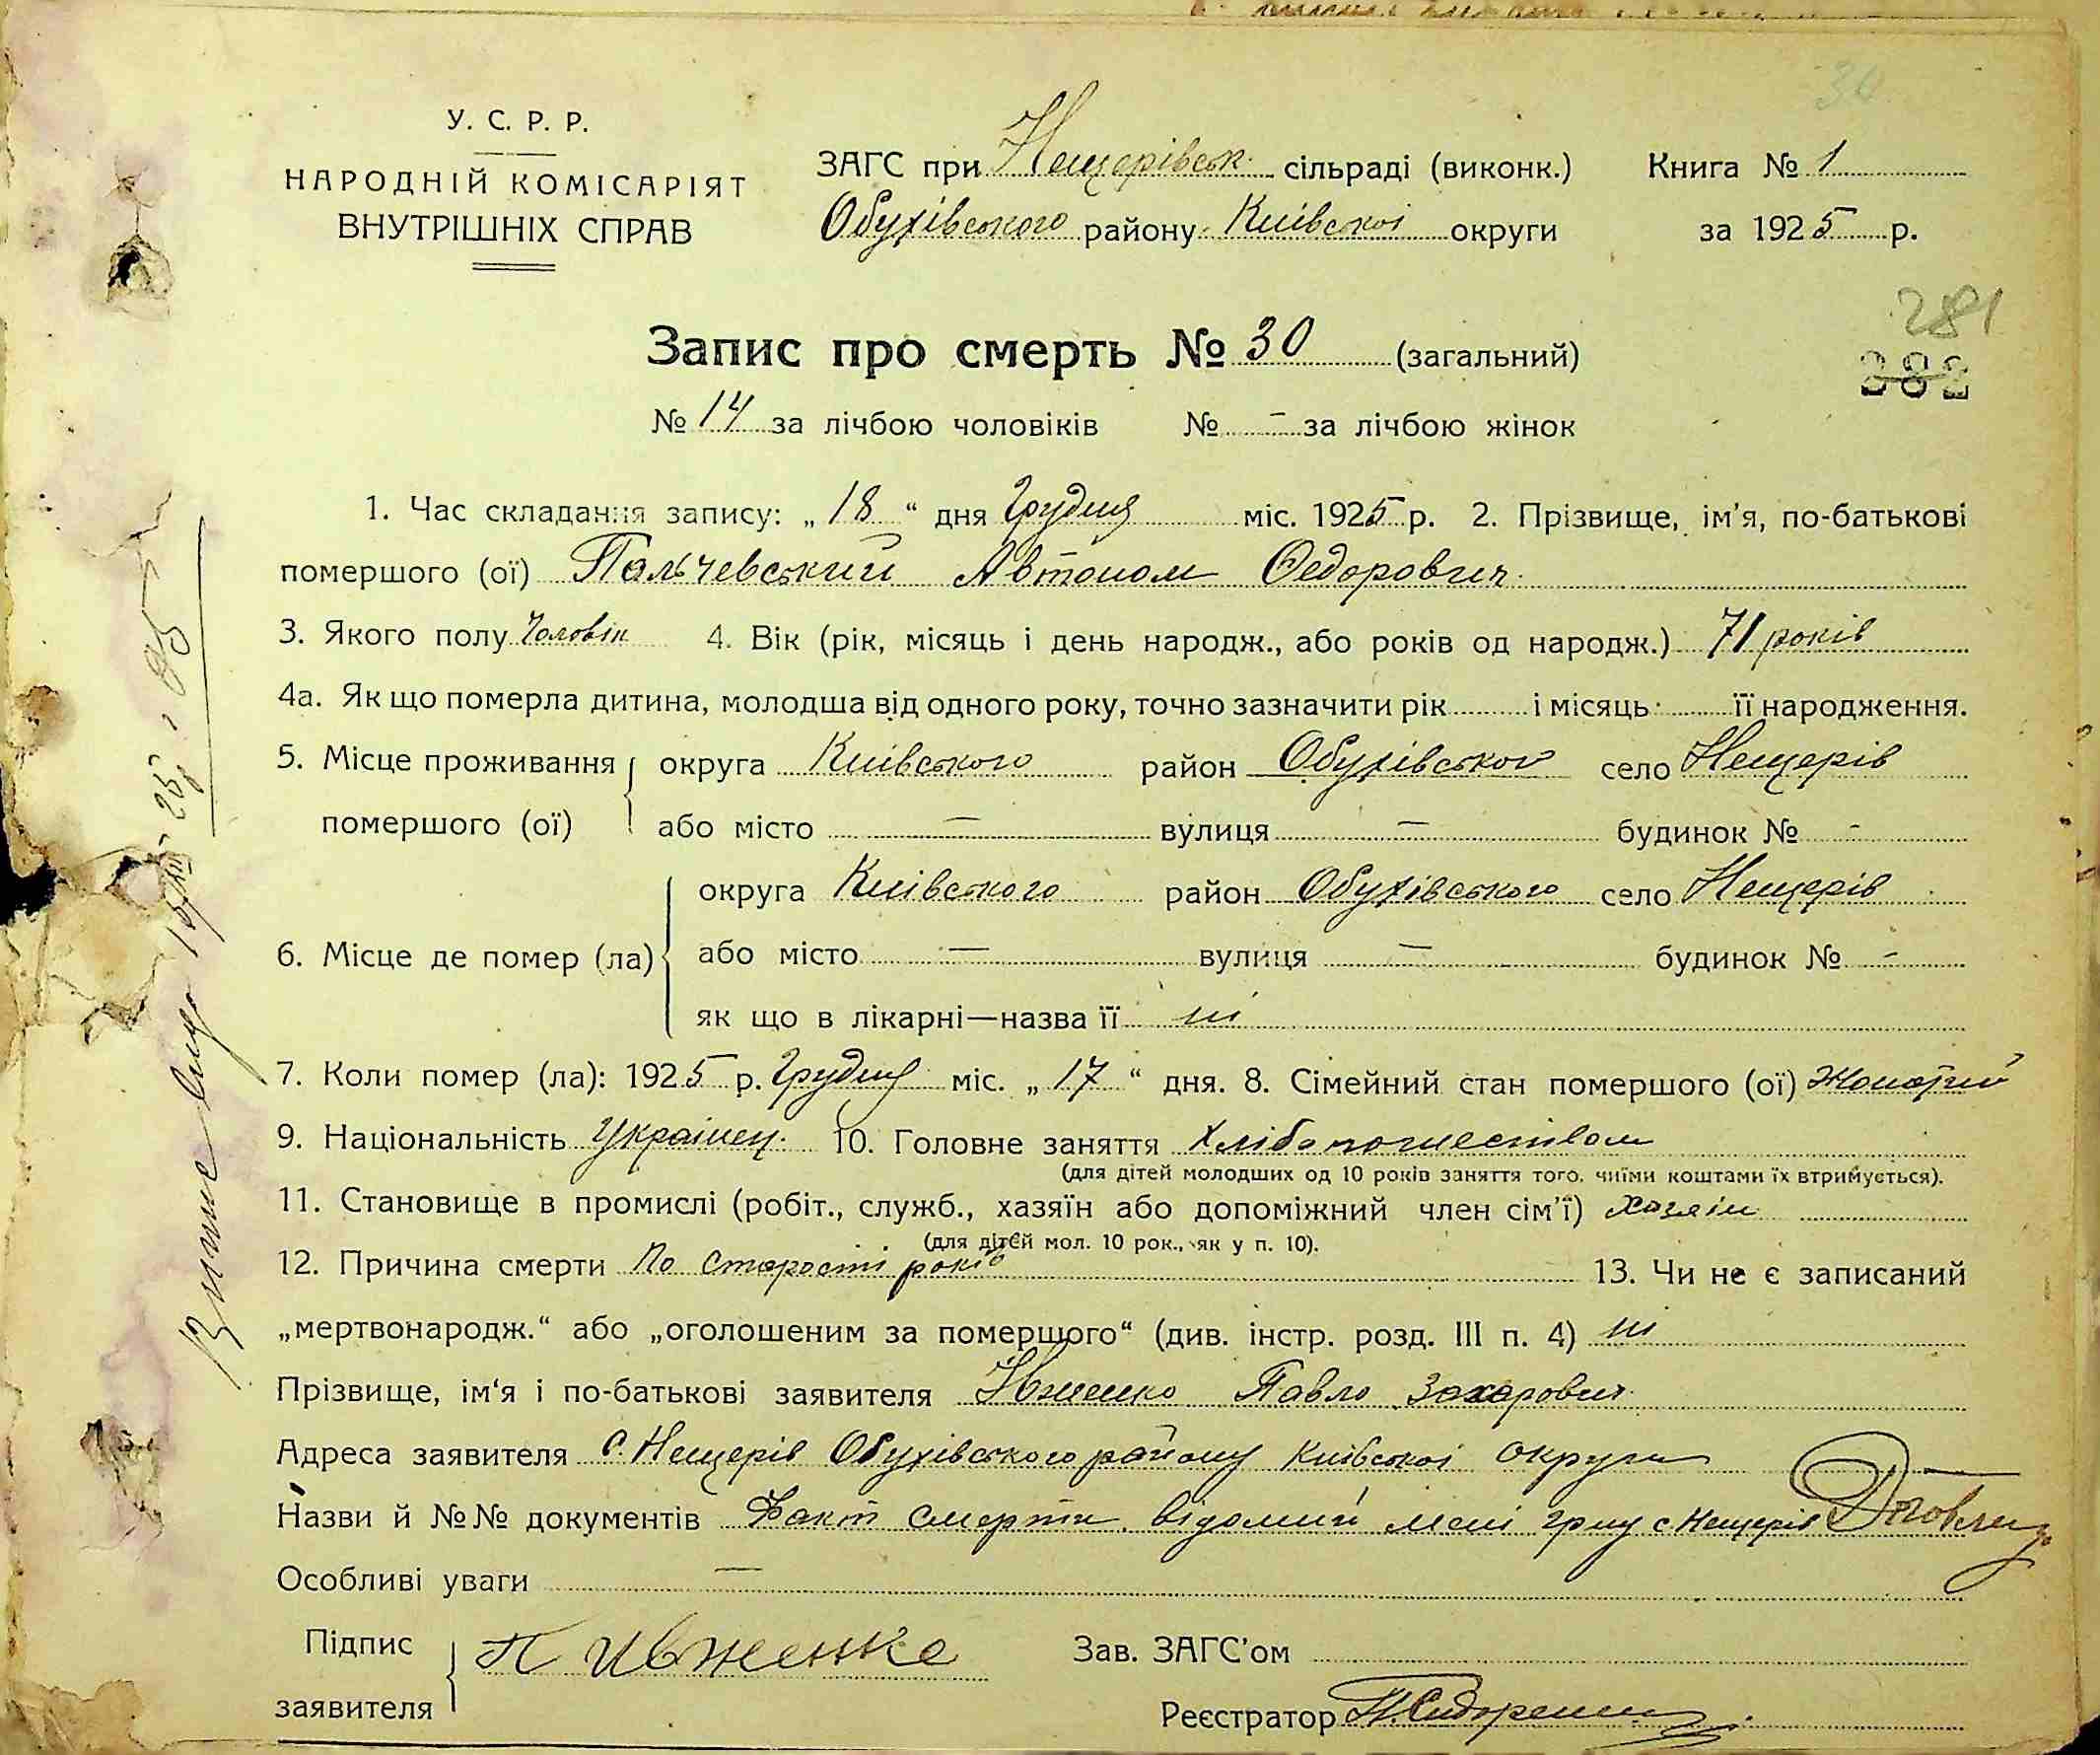 У. С. Р. Р.
НАРОДНІЙ КОМІСАРІЯТ
ВНУТРІШНІХ СПРАВ
ЗАГС при Нещерівськ. сільраді (виконк.) Книга № 1
Обухівського району Київської округи за 1925 р.
281
382
Запис про смерть № 30 (загальний)
№ 14 за лічбою чоловіків № - за лічбою жінок
1. Час складання запису: „18“ дня Грудня міс. 1925 р. 2. Прізвище, ім'я, по-батькові
помершого (ої) Пальчевський Автоном Федорович
3. Якого полу Чоловік 4. Вік (рік, місяць і день народж., або років од народж.) 71 років
4а. Як що померла дитина, молодша від одного року, точно зазначити рік і місяць її народження.
5. Місце проживання округа Київського район Обухівськог село Нещерів
помершого (ої) або місто — вулиця — будинок № -
округа Київського район Обухівського село Нещерів
6. Місце де помер (ла) або місто — вулиця — будинок № -
як що в лікарні—назва її ні
7. Коли помер (ла): 1925 р. Грудня міс. „17“ дня. 8. Сімейний стан помершого (ої) Жонатий
9. Національність Українец. 10. Головне заняття Хлібопашеством
(для дітей молодших од 10 років заняття того, чиїми коштами їх втримується).
11. Становище в промислі (робіт., служб., хазяїн або допоміжний член сім'ї) хазяін
(для дітей мол. 10 рок., як у п. 10).
12. Причина смерти По старости років 13. Чи не є записаний
„мертвонародж.“ або „оголошеним за померщого“ (див. інстр. розд. III п. 4) ні
Прізвище, ім'я і по-батькові заявителя Івженко Павло Захарович
Адреса заявителя с. Нещерів Обухівського району Київскої округи
Назви й №№ документів Факт смерти відомий мені гр-ну с Нещерів
Особливі уваги —
Підпис П Ивженко Зав. ЗАГС'ом
заявителя Реєстратор Сидоренко